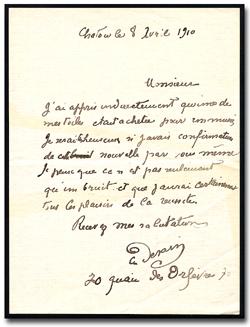 Chatou le 8 Avril 1910
Monsieur
J'ai appris indirectement qu'une de
mes toiles était achetée pour
Je serais heureux si j'avais confirmation
de nouvelle par vous même
Je pense que ce n'est pas seulement
qu'un bruit et que j'aurai certainement
tous les plaisirs de la
Recevez mes salutations
Derain
20 quai des Orfèvres